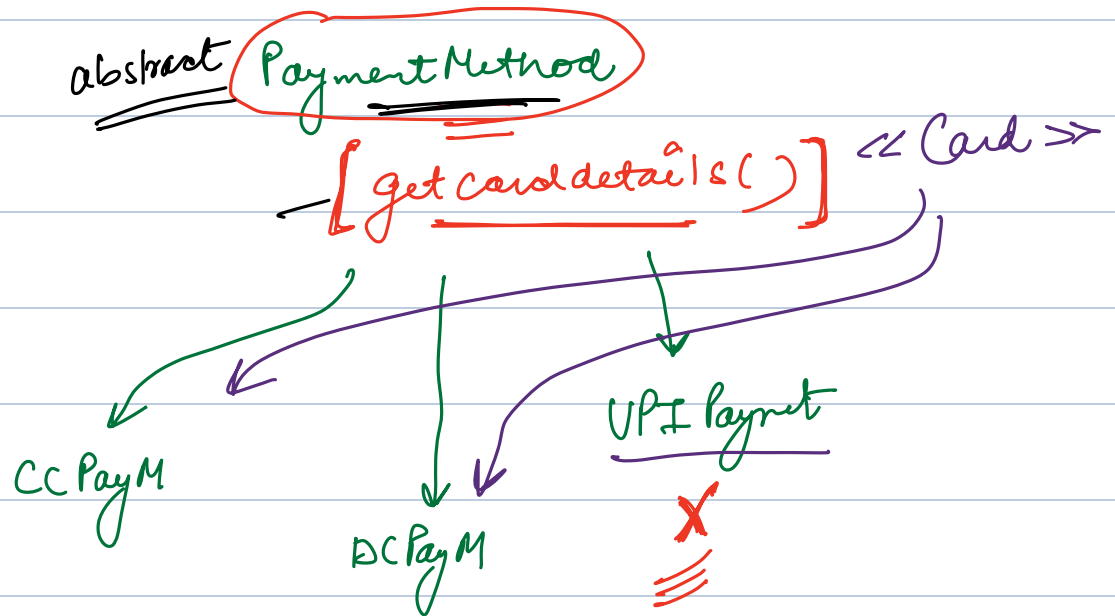 abstract PaymentMethod
[getcarddetails()] << Card >>
UPI Paymet
CC PayM
DC PayM
X